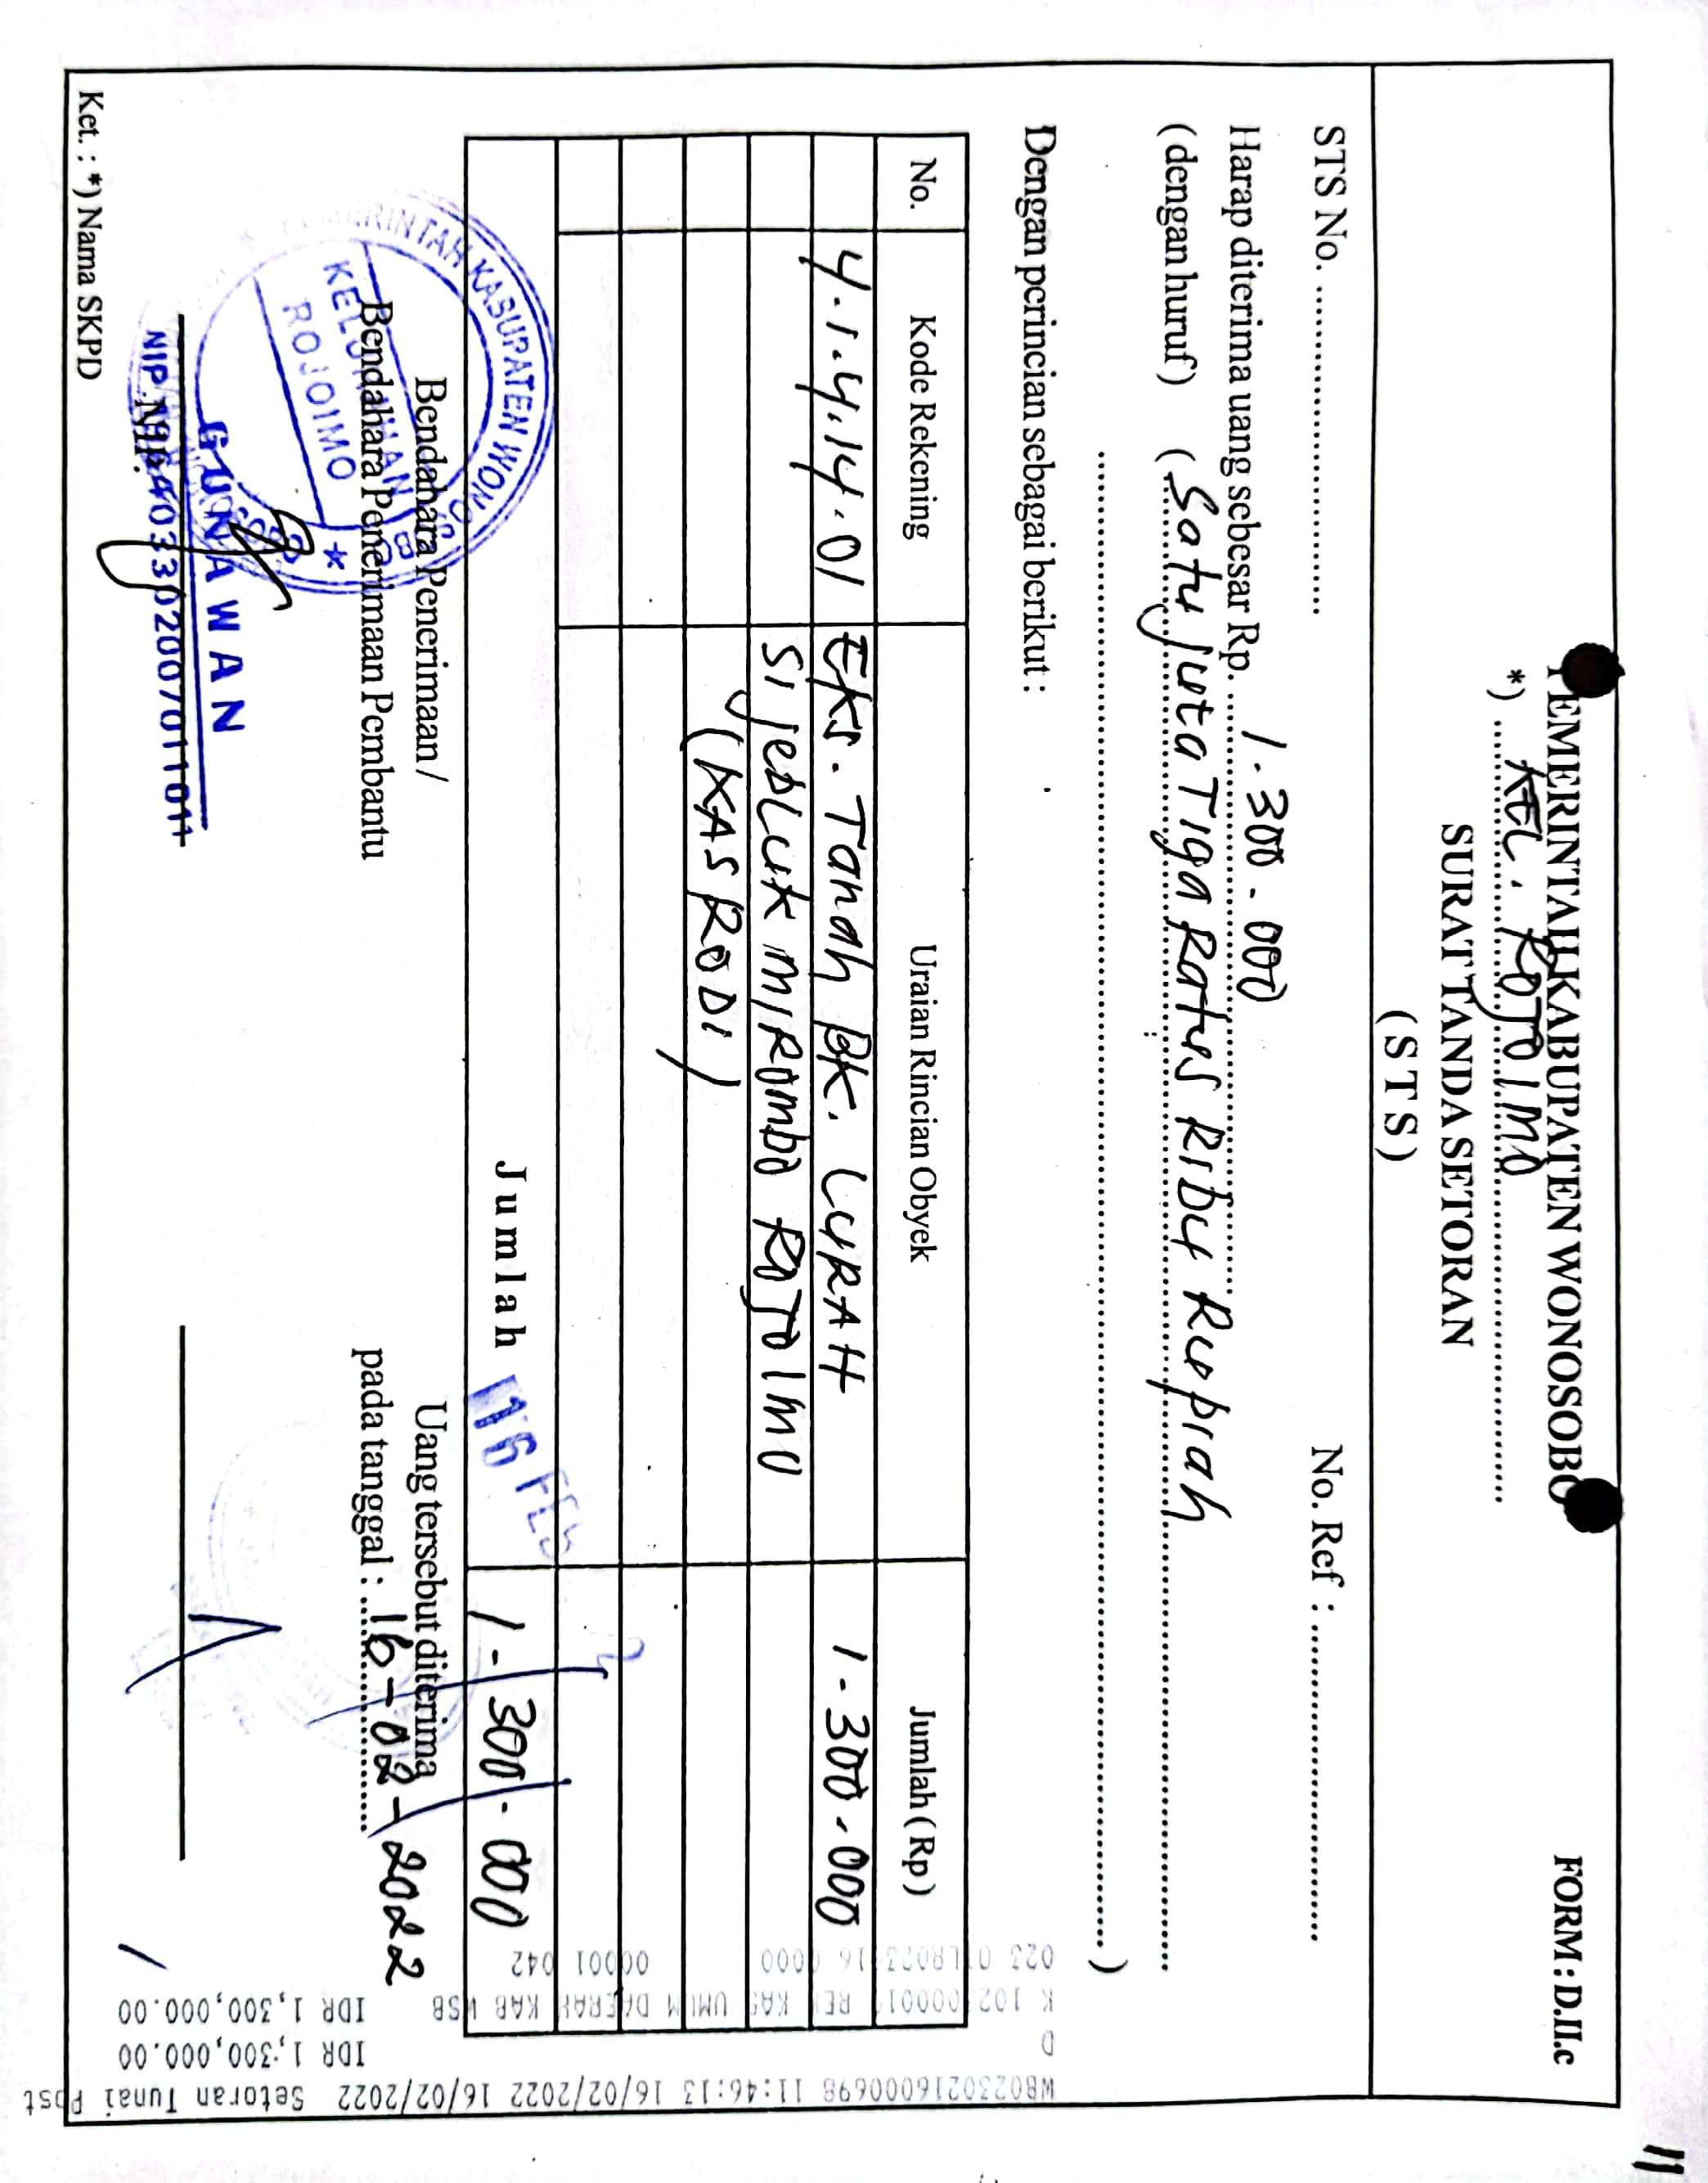 FORM : D.II.c
PEMERINTAH KABUPATEN WONOSOBO
*) KEL. ROJOIMO
SURAT TANDA SETORAN
( S T S )
STS No. No. Ref :
Harap diterima uang sebesar Rp. 1.300.000
(dengan huruf) ( Satu juta Tiga Ratus Ribu Rupiah
)
Dengan perincian sebagai berikut :
No. Kode Rekening Uraian Rincian Obyek Jumlah ( Rp )
4.1.4.14.01 Eks. Tanah BK. LURAH 1.300.000
Sijebluk Mirombo ROJOIMO
(KASRODI)
Jumlah 1.300.000
16 FEB
Bendahara Penerimaan /
Bendahara Penerimaan Pembantu
PEMERINTAH KABUPATEN WONOSOBO
KELURAHAN
ROJOIMO
GUNAWAN
NIP.
NIP. 196403302007011011
Uang tersebut diterima
pada tanggal : 16-02-2022
Ket. : *) Nama SKPD
WB0230216000698 11:46:13 16/02/2022 16/02/2022 Setoran Tunai Post
D IDR 1,300,000.00
UMUM DAERAH KAB WSB IDR 1,300,000.00
00001 042
11